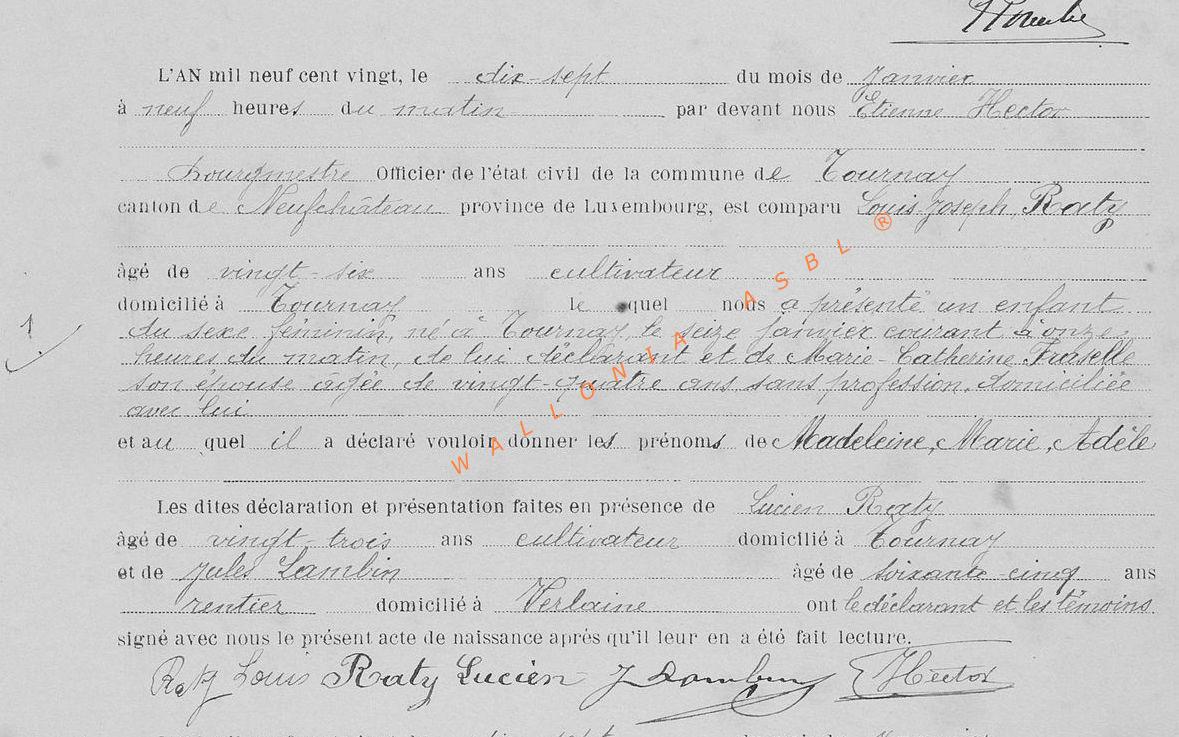 L'AN mil neuf cent vingt, le dix-sept du mois de Janvier
à neuf heures du matin par devant nous Etienne Hector
bourgmestre Officier de l'état civil de la commune de Tournay
canton de Neufchâteau province de Luxembourg, est comparu Louis Joseph Raty
âgé de vingt-six ans cultivateur
domicilié à Tournay le quel nous a présenté un enfant
du sexe féminin, né à Tournay, le seize janvier courant à onze
heures du matin, de lui déclarant et de Marie-Catherine Fraselle
son épouse âgée de vingt-quatre ans, sans profession, domiciliée
avec lui
et au quel il a déclaré vouloir donner les prénoms de Madeleine, Marie, Adèle
Les dites déclaration et présentation faites en présence de Lucien Raty
âgé de vingt-trois ans cultivateur domicilié à Tournay
et de Jules Lambin âgé de soixante-cinq ans
rentier domicilié à Verlaine ont le déclarant et les témoins
signé avec nous le présent acte de naissance après qu'il leur en a été fait lecture.
Raty Louis Raty Lucien J Lambin E Hector
1
WALLONIA ASBL ®